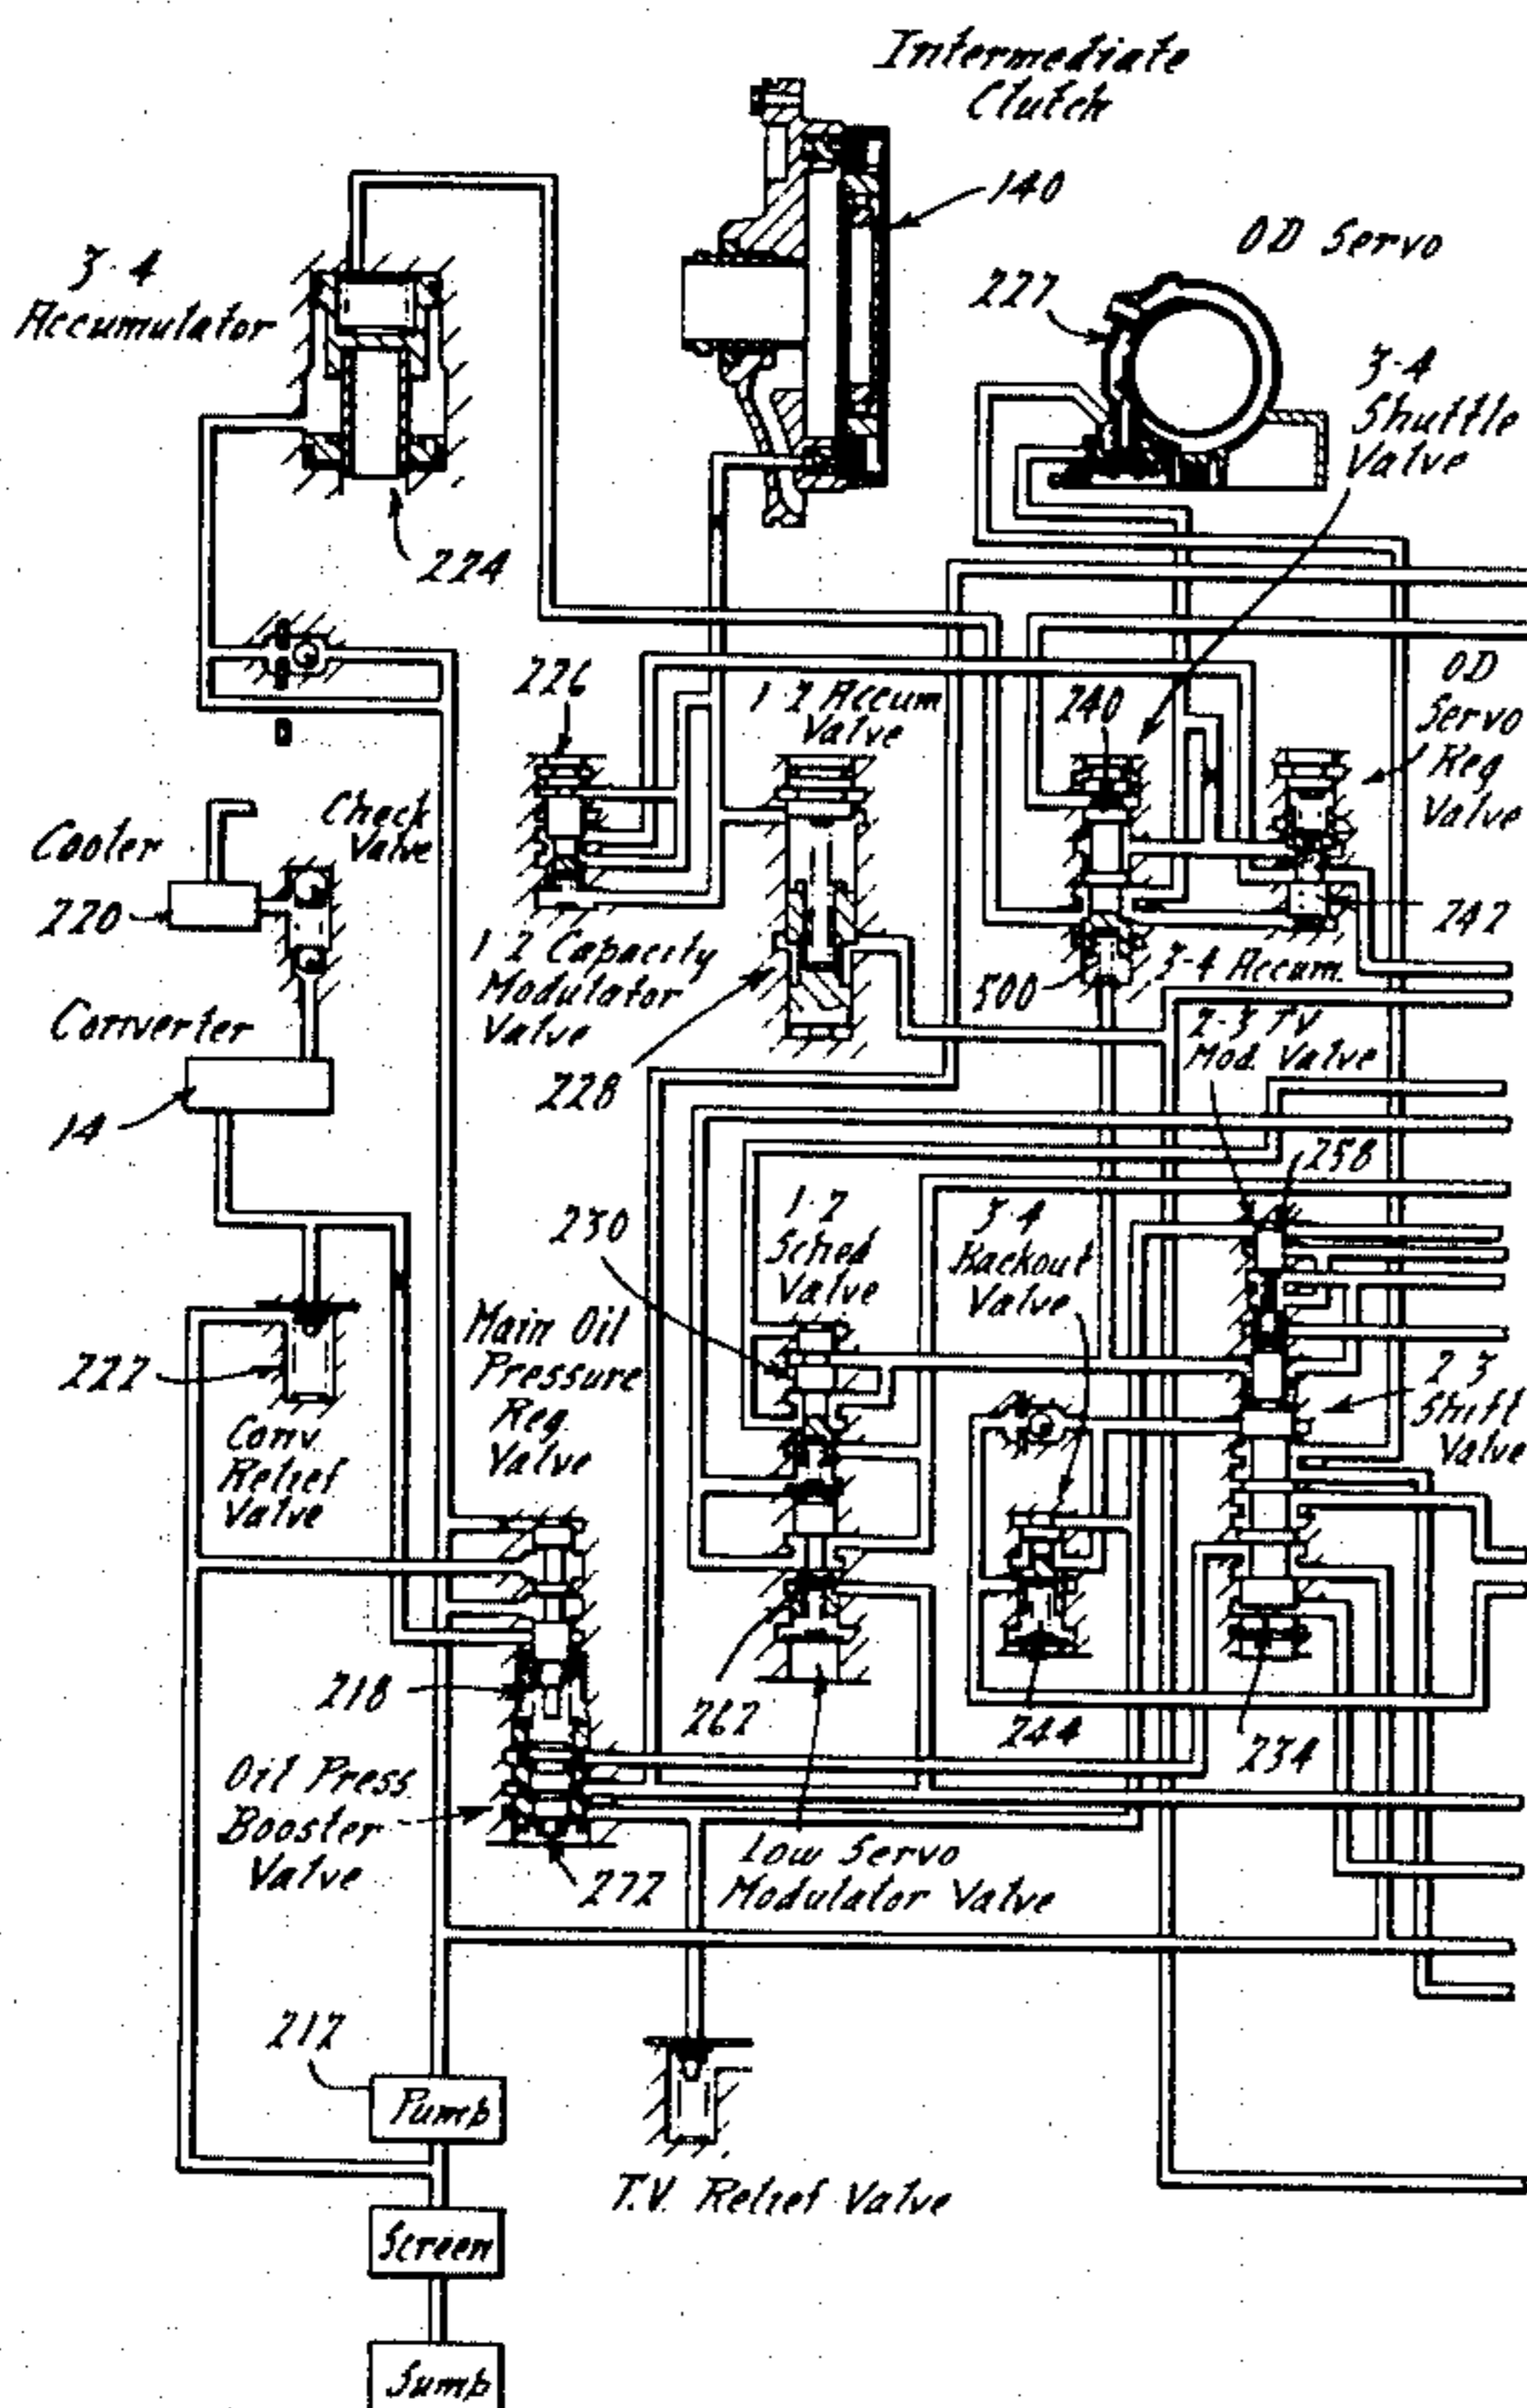 Intermediate
Clutch
140
OD Servo
227
3-4
Accumulator
3-4
Shuttle
Valve
224
226
1-2 Accum
Valve
240
OD
Servo
Reg
Valve
Cooler
Check
Valve
220
1-2 Capacity
Modulator
Valve
242
500
3-4 Accum.
Converter
2-3 TV
Mod. Valve
228
14
258
230
1-2
Sched
Valve
3-4
Backout
Valve
Main Oil
Pressure
Reg.
Valve
222
Conv.
Relief
Valve
2-3
Shift
Valve
218
262
244
234
Oil Press
Booster
Valve
272
Low Servo
Modulator Valve
212
Pump
T.V. Relief Valve
Screen
Sump